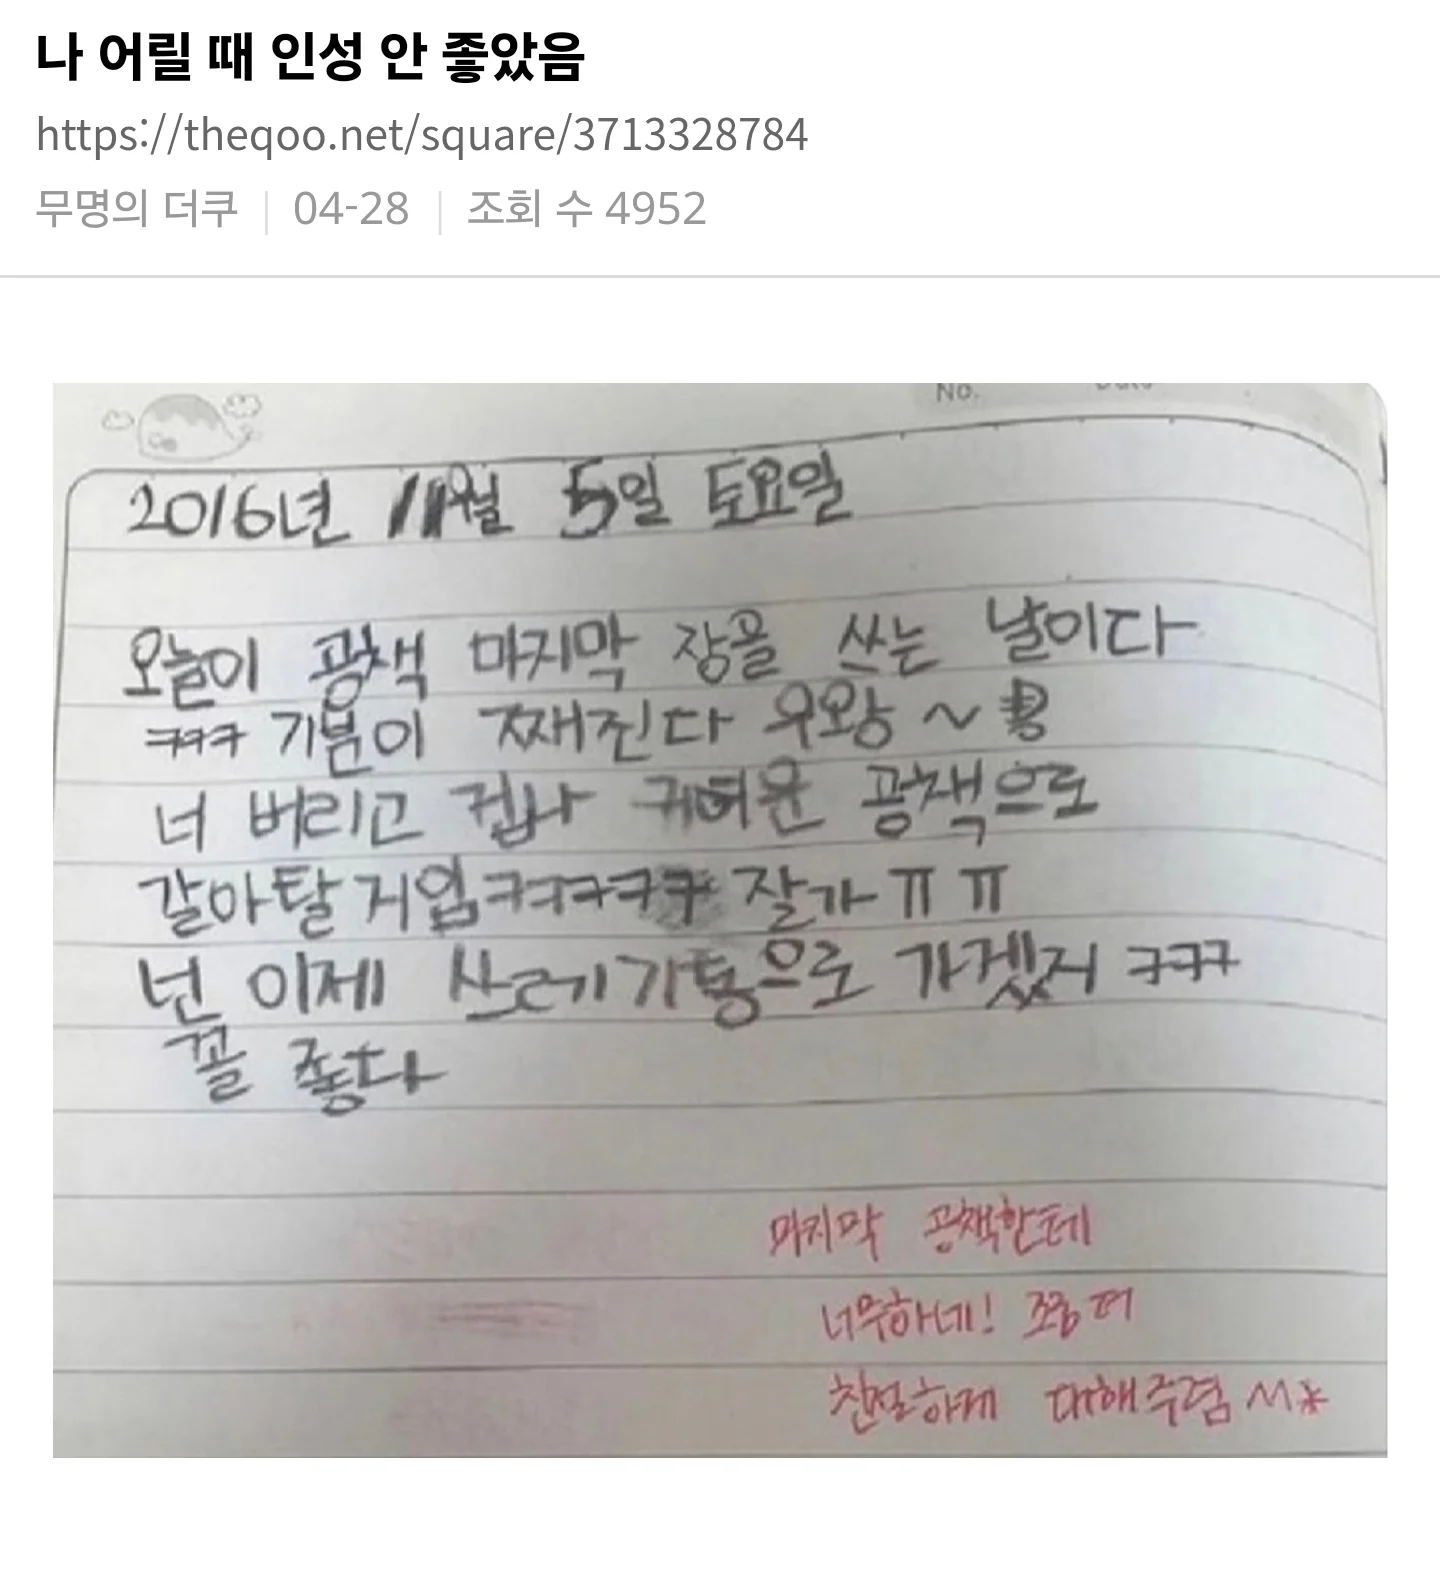 나 어릴 때 인성 안 좋았음
https://theqoo.net/square/3713328784
무명의 더쿠 | 04-28 | 조회 수 4952
No. Date
2016년 11월 5일 토요일
오늘이 공책 마지막 장골 쓰는 날이다
ㅋㅋㅋ 기분이 째진다 우왕~
너 버리고 겁나 귀여운 공책으로
갈아탈거임ㅋㅋㅋㅋㅋ 잘가ㅠㅠ
넌 이제 쓰레기통으로 가겠지 ㅋㅋㅋ
꼴 좋다
마지막 공책한테
너무하네! 조금 더
친절하게 대해주렴 ^^*